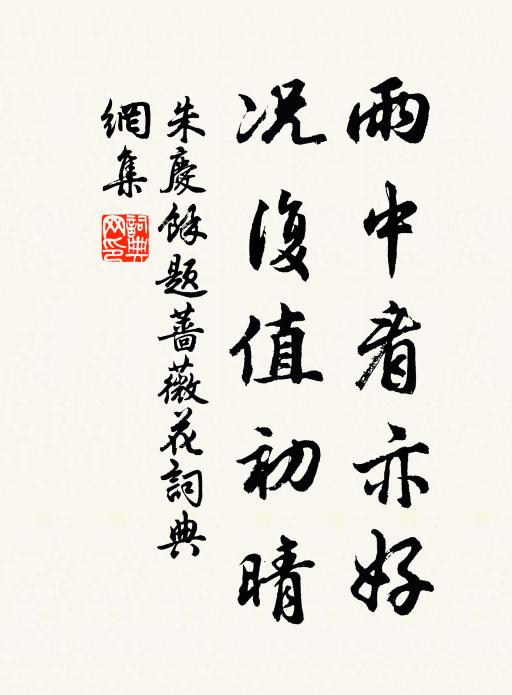 雨中看亦好
况復值初晴
朱慶餘題薔薇花詞典
網集
詞典網印